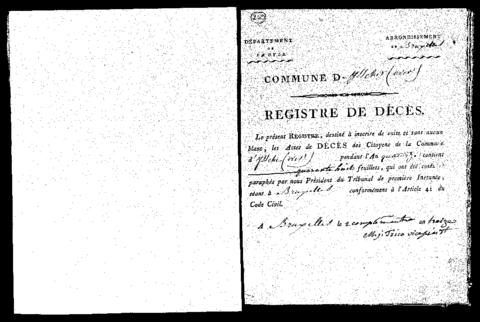 DÉPARTEMENT
DE
LA DYLE.
ARRONDISSEMENT
de Bruxelles
COMMUNE D
REGISTRE DE DÉCÈS.
Le présent REGISTRE, destiné à inscrire de suite et sans aucun
blanc, les Actes de DÉCÈS des Citoyens de la Commune
d' pendant l'An quatorze, contient
quarante huit feuillets, qui ont été cotés,
paraphés par nous Président du Tribunal de première Instance,
séant à Bruxelles conformément à l'Article 41 du
Code Civil.
à Bruxelles le 2 complémentaire an treize